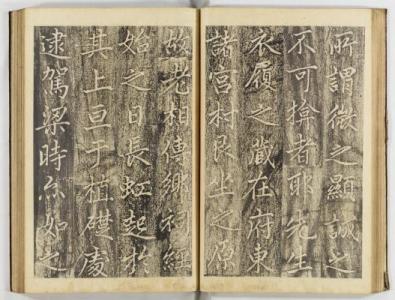 所謂微之顯誠之
不可揜者耶先生
衣履之藏在府東
諸宮村艮坐之原
故老相傳鄉祠經
始之日長虹起於
其上亘于植礎處
逮駕梁時亦如之